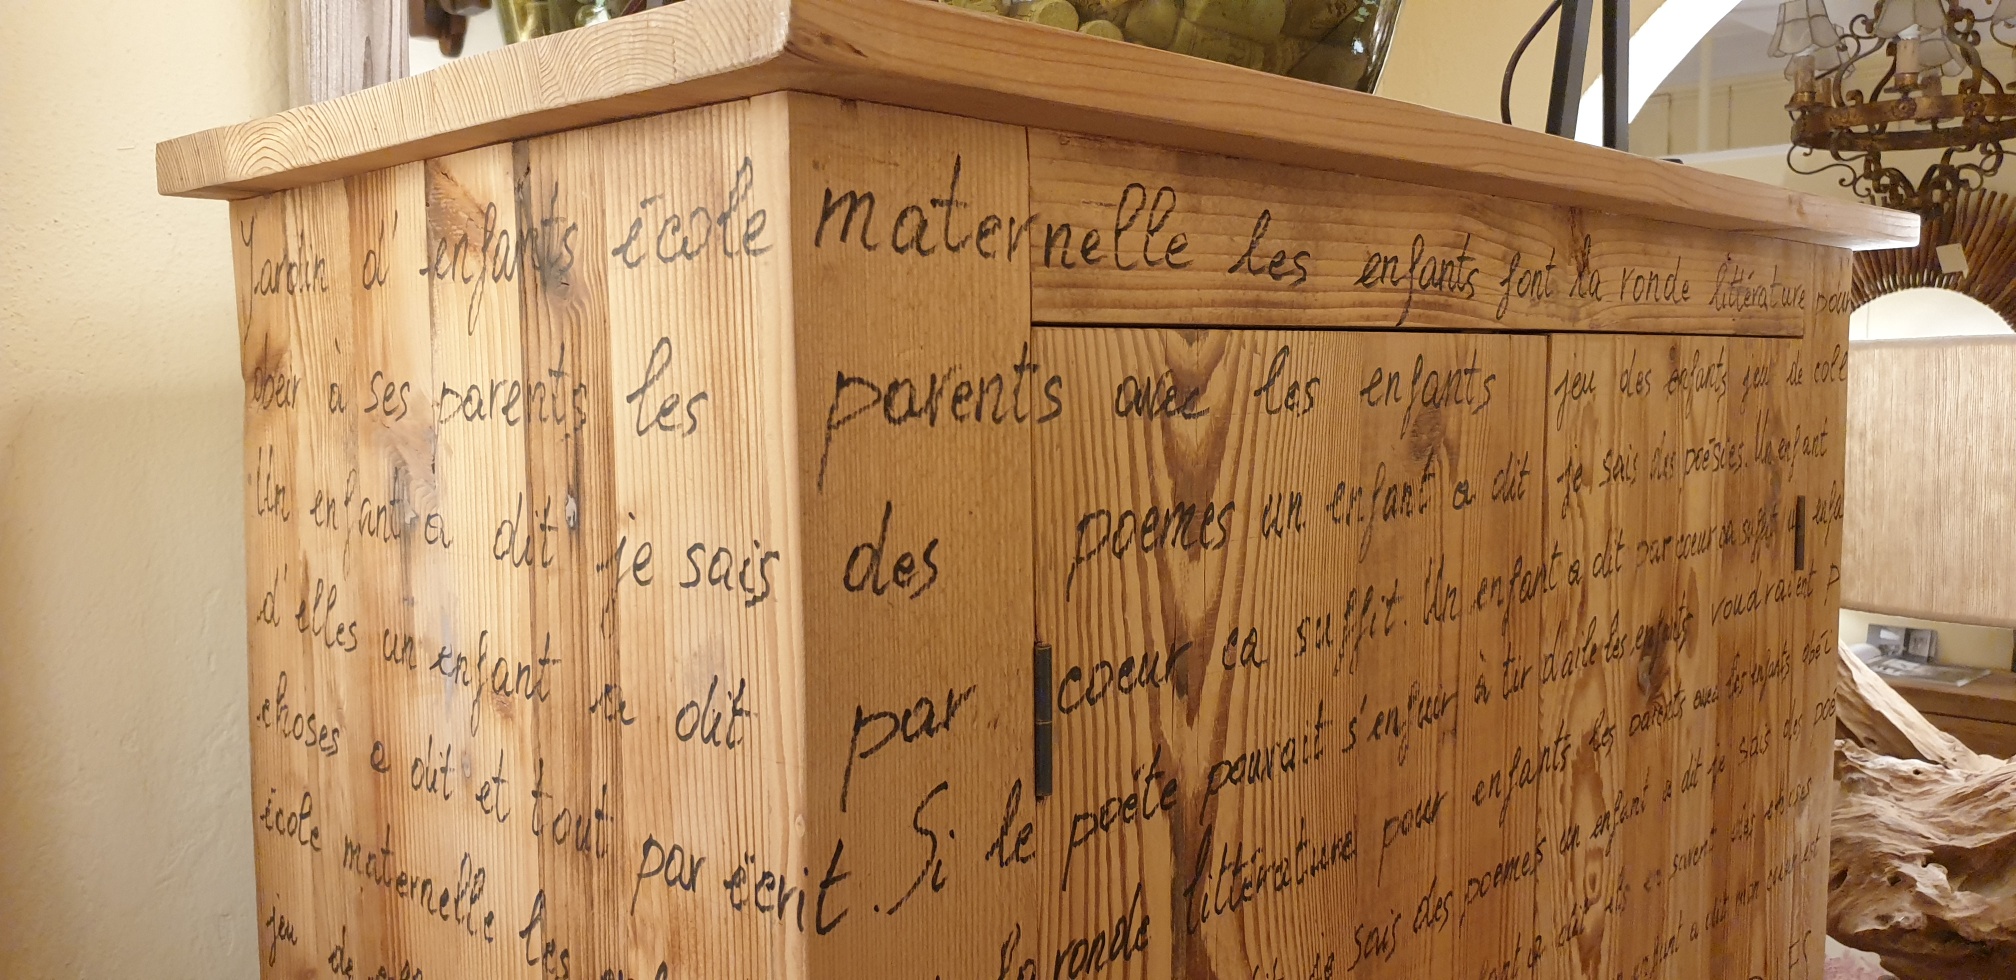 Jardin d'enfants école maternelle les enfants font la ronde littérature pour
obeir à ses parents les parents avec les enfants jeu des enfants jeu de cole
Un enfant a dit je sais des poemes un enfant a dit je sais des poésies. Un enfant
d'elles un enfant a dit par coeur ca suffit. Un enfant a dit par coeur ca suffit
choses a dit et tout par ëcrit. Si le poëte pouvait s'enfuir à tir d'aile les enfants voudraient p
école maternelle les la ronde littérature pour enfants les parents avec les enfants
jeu de sais des poemes un enfant a dit je sais des poé
a dit ils en savent des choses
enfant a dit mon